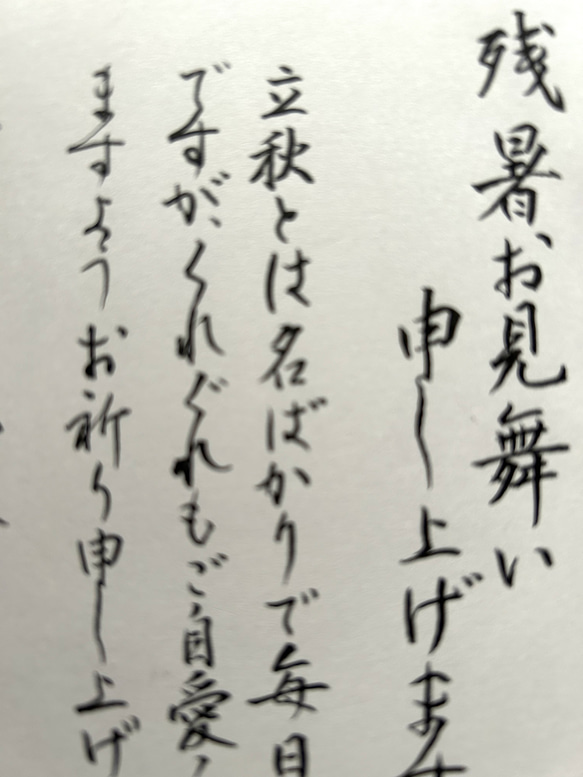 残暑お見舞い
申し上げます
立秋とは名ばかりで毎日
ですが、くれぐれもご自愛
ますようお祈り申し上げ